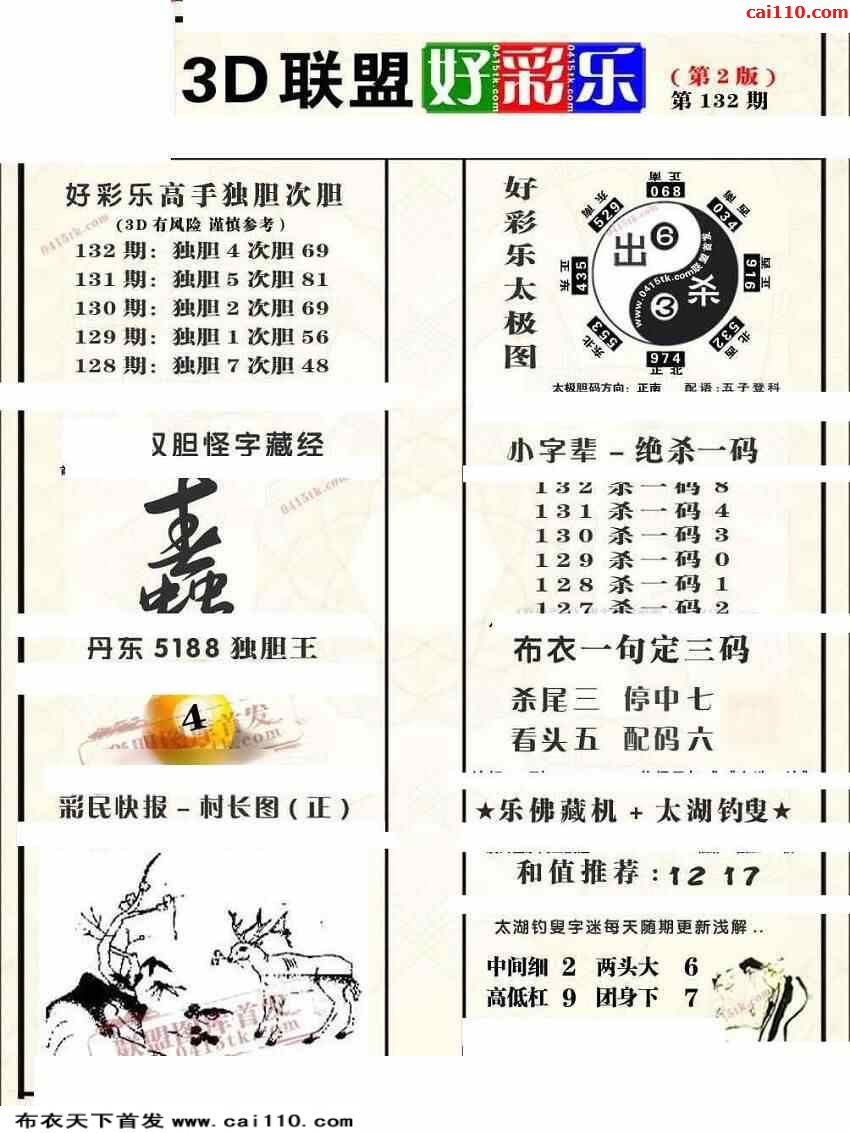 cai110.com
3D 联盟 好彩乐
0415tk.com 0415tk.com 0415tk.com
(第2版)
第 132 期
好彩乐高手独胆次胆
(3D有风险 谨慎参考)
132 期: 独胆 4 次胆 69
131 期: 独胆 5 次胆 81
130 期: 独胆 2 次胆 69
129 期: 独胆 1 次胆 56
128 期: 独胆 7 次胆 48
0415tk.com
好彩乐太极图
正南 068
西南 034
正西 916
西北 532
正北 974
东北 553
正东 435
东南 529
出 6
杀 3
www.0415tk.com联盟首发
太极胆码方向: 正南 配语: 五子登科
双胆怪字藏经
0415tk.com
丹东 5188 独胆王
4
小字辈 – 绝杀一码
132 杀一码 8
131 杀一码 4
130 杀一码 3
129 杀一码 0
128 杀一码 1
127 杀一码 2
布衣一句定三码
杀尾三 停中七
看头五 配码六
彩民快报 – 村长图(正)
联盟图库首发
0415tk.com
★乐佛藏机 + 太湖钓叟★
和值推荐:12 17
太湖钓叟字迷每天随期更新浅解..
中间细 2 两头大 6
高低杠 9 团身下 7
0415tk.com
布衣天下首发 www.cai110.com